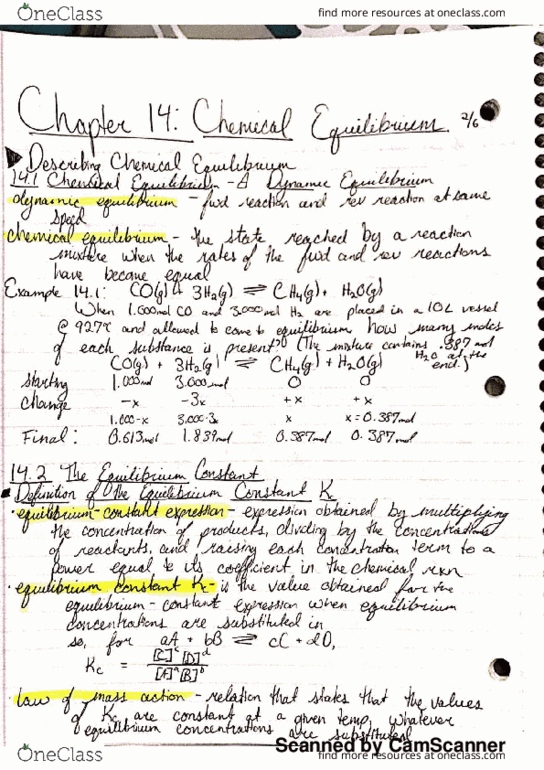 OneClass
find more resources at oneclass.com
Chapter 14: Chemical Equilibrium 2/6
Describing Chemical Equilibrium
14.1 Chemical Equilibrium - A Dynamic Equilibrium
dynamic equilibrium - fwd reaction and rev reaction at same
speed
chemical equilibrium - the state reached by a reaction
mixture when the rates of the fwd and rev reactions
have become equal
Example 14.1: CO(g) + 3H₂(g) ⇌ CH₄(g) + H₂O(g)
When 1.000mol CO and 3.000mol H₂ are placed in a 10L vessel
@ 927°C and allowed to come to equilibrium how many moles
of each substance is present? (The mixture contains .387 mol
H₂O at the end.)
CO(g) + 3H₂(g) ⇌ CH₄(g) + H₂O(g)
starting 1.000mol 3.000mol 0 0
change -x -3x +x +x
1.000-x 3.000-3x x x = 0.387mol
Final: 0.613mol 1.839mol 0.387mol 0.387mol
14.2 The Equilibrium Constant
Definition of the Equilibrium Constant K
· equilibrium-constant expression - expression obtained by multiplying
the concentration of products, dividing by the concentrations
of reactants, and raising each concentration term to a
power equal to its coefficient in the chemical rxn
· equilibrium constant Kc - is the value obtained for the
equilibrium - constant expression when equilibrium
concentrations are substituted in
so, for aA + bB ⇌ cC + dD,
Kc = [C]ᶜ[D]ᵈ / [A]ᵃ[B]ᵇ
· law of mass action - relation that states that the values
of Kc are constant at a given temp, whatever
equilibrium concentrations are substituted
Scanned by CamScanner
OneClass
find more resources at oneclass.com